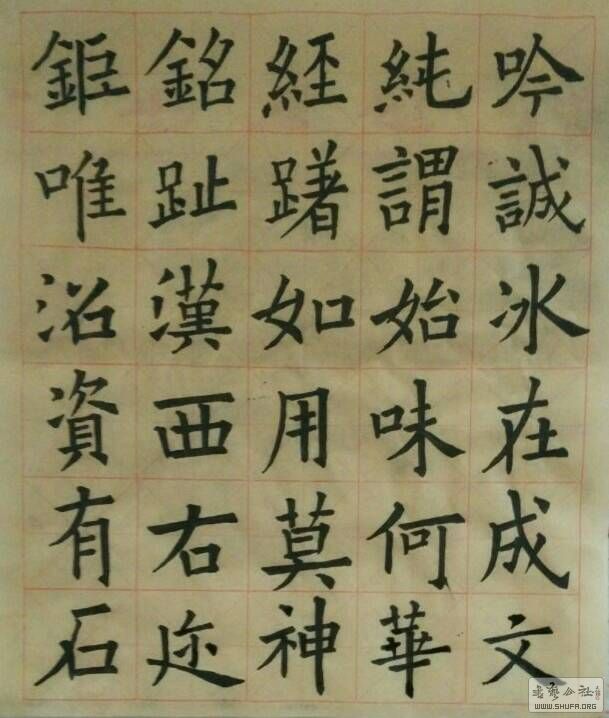 吟誠冰在成文
純謂始味何華
經躇如用莫神
銘趾漢西右迩
鉅唯沿資有石
書藝公社
WWW.SHUFA.ORG